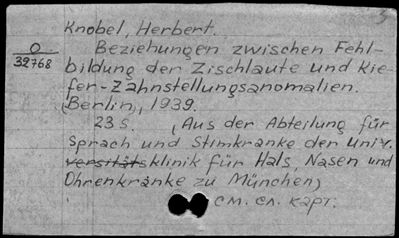 Knobel, Herbert.
O
32768
Beziehungen zwischen Fehl-
bildung der Zischlaute und Kie-
fer-Zahnstellungsanomalien.
Berlin, 1939.
23 S. (Aus der Abteilung für
Sprach und Stimkranke der Univ.
versitätsklinik für Hals, Nasen und
Ohrenkranke zu München)
см. сл. карт.